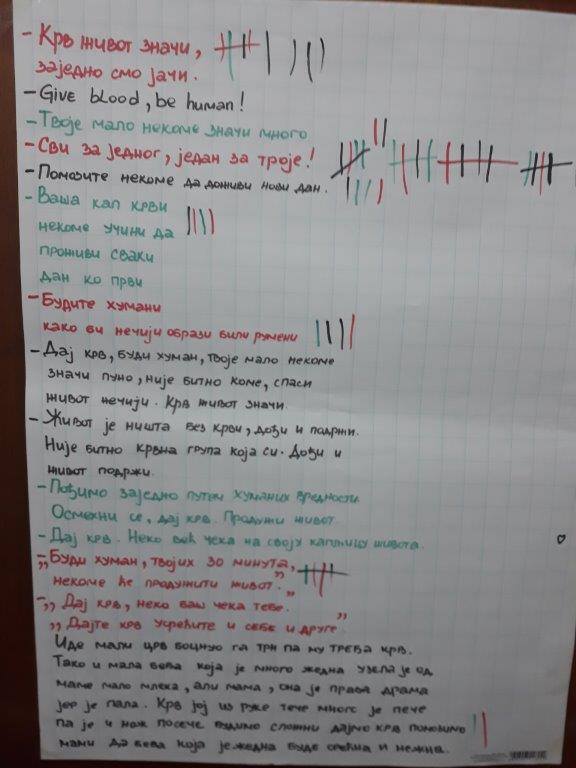 - Крв живот значи,
заједно смо јачи.
- Give blood, be human!
- Твоје мало некоме значи много
- Сви за једног, један за троје!
- Помозите некоме да доживи нови дан.
- Ваша кап крви
некоме учини да
проживи сваки
дан ко први
- Будите хумани
како би нечији образи били румени
- Дај крв, буди хуман, твоје мало некоме
значи пуно, није битно коме, спаси
живот нечији. Крв живот значи.
- Живот је ништа без крви, дођи и подржи.
Није битно крвна група која си. Дођи и
живот подржи.
- Пођимо заједно путем хуманих вредности
Осмехни се, дај крв. Продужи живот.
- Дај крв. Неко већ чека на своју капљицу живота.
- „Буди хуман, твојих 30 минута,
некоме ће продужити живот.”
- „Дај крв, неко баш чека тебе.”
„Дајте крв усрећите и себе и друге.”
Иде мали црв боцнуо га трн па му треба крв.
Тако и мала беба која је много жедна узела је од
маме мало млека, али мама, она је права драма
јер је пала. Крв јој из руке тече много је пече
па је и нож посече будимо сложни дајмо крв помозимо
мами да беба која је жедна буде срећна и нежна.